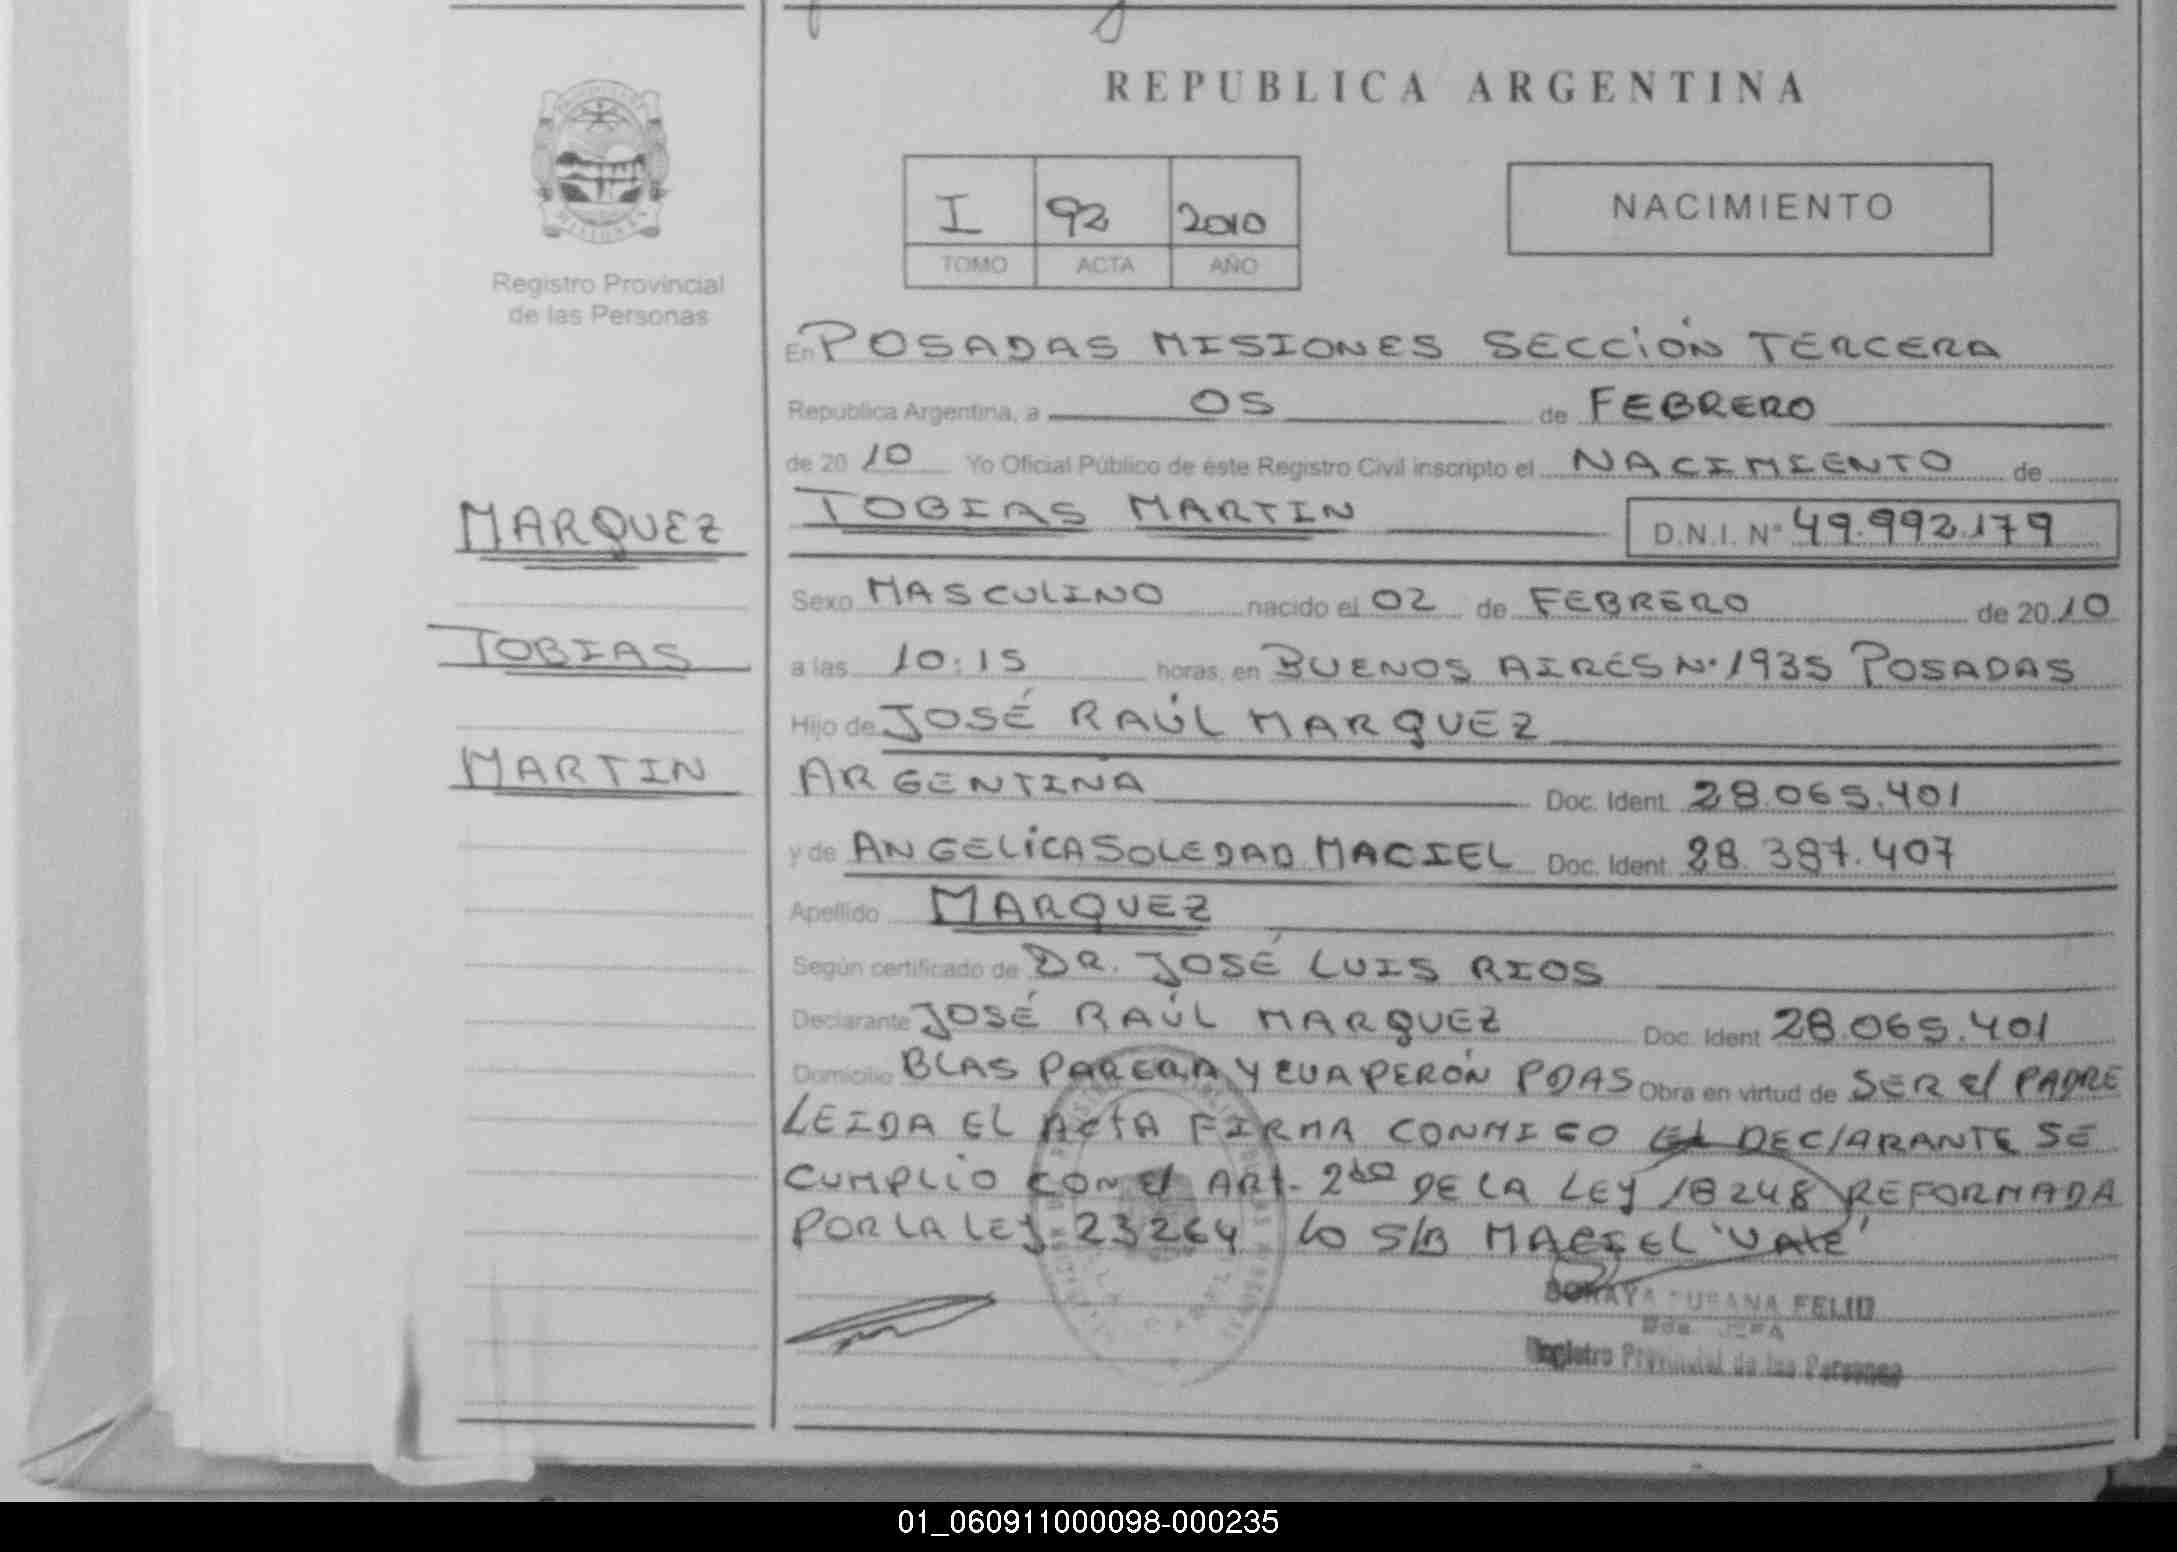 REPUBLICA ARGENTINA
I 92 2010
TOMO ACTA AÑO
NACIMIENTO
Registro Provincial
de las Personas
En POSADAS MISIONES SECCIÓN TERCERA
Republica Argentina, a 05 de FEBRERO
de 20 10 Yo Oficial Público de éste Registro Civil inscripto el NACIMIENTO de
MARQUEZ
TOBIAS MARTIN D.N.I. Nº 49.992.179
Sexo MASCULINO nacido el 02 de FEBRERO de 20 10
TOBIAS
a las 10:15 horas, en BUENOS AIRES Nº 1935 POSADAS
Hijo de JOSÉ RAÚL MARQUEZ
MARTIN
ARGENTINA Doc. Ident. 28.065.401
y de ANGELICA SOLEDAD MACIEL Doc. Ident. 28.387.407
Apellido MARQUEZ
Según certificado de DR. JOSÉ LUIS RIOS
Declarante JOSÉ RAÚL MARQUEZ Doc. Ident 28.065.401
Domicilio BLAS PARERA Y EVA PERÓN PDAS Obra en virtud de SER el PADRE
LEIDA EL ACTA FIRMA CONMIGO EL DECLARANTE SE
CUMPLIO CON el ART. 2do DE LA LEY 18248 REFORMADA
POR LA LEY 23264 lo S/B MACIEL 'VALE'
SORAYA SUSANA FELIU
JEFA
Registro Provincial de las Personas
01_060911000098-000235